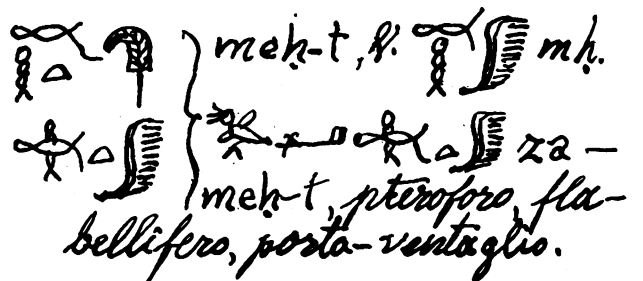 meḥ-t, V. mḥ.
za-
meḥ-t, pteroforo, fla-
bellifero, porta-ventaglio.